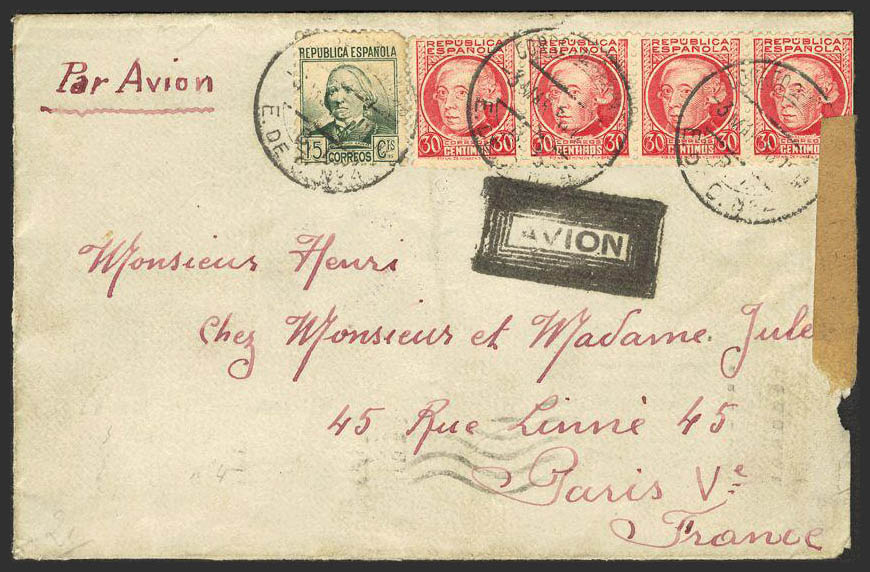 Par Avion
REPUBLICA ESPAÑOLA
15 CORREOS Cts
REPUBLICA ESPAÑOLA
30 CORREOS 30
CENTIMOS
REPUBLICA ESPAÑOLA
30 CORREOS 30
CENTIMOS
REPUBLICA ESPAÑOLA
30 CORREOS 30
CENTIMOS
REPUBLICA ESPAÑOLA
30 CORREOS
CENTIMOS
AVION
Monsieur Henri
Chez Monsieur et Madame Jule
45 Rue Linné 45
Paris Ve
France